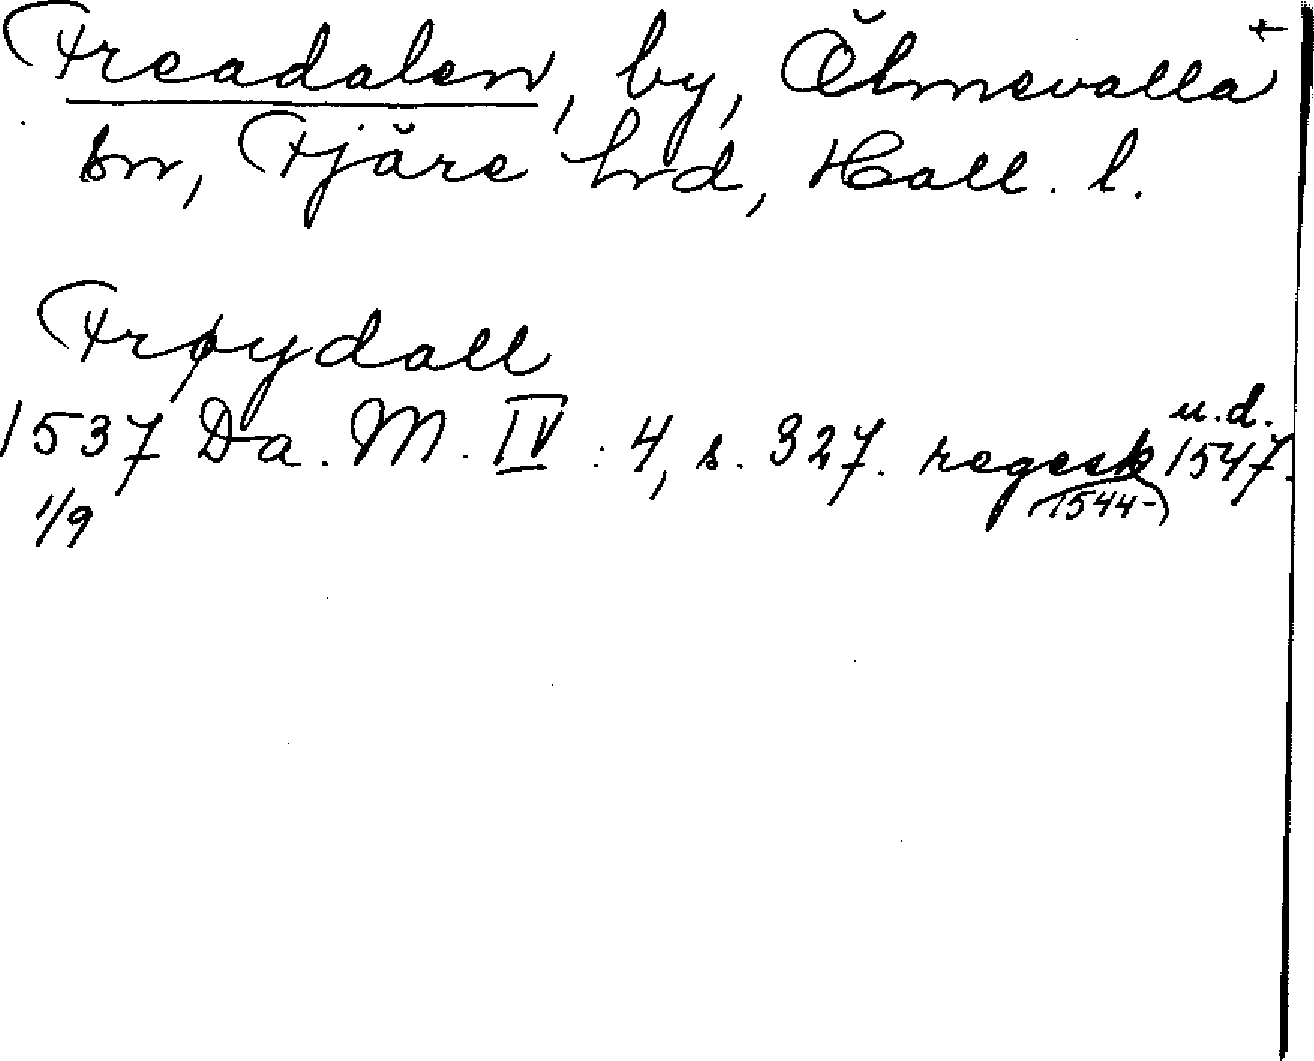 Freadalen, by, Ölmevalla +
sn, Fjäre hd, Hall. l.
Frøydall
1537 Da. M. IV : 4, s. 327. regest u.d. 1547.
1/9 (1544-)